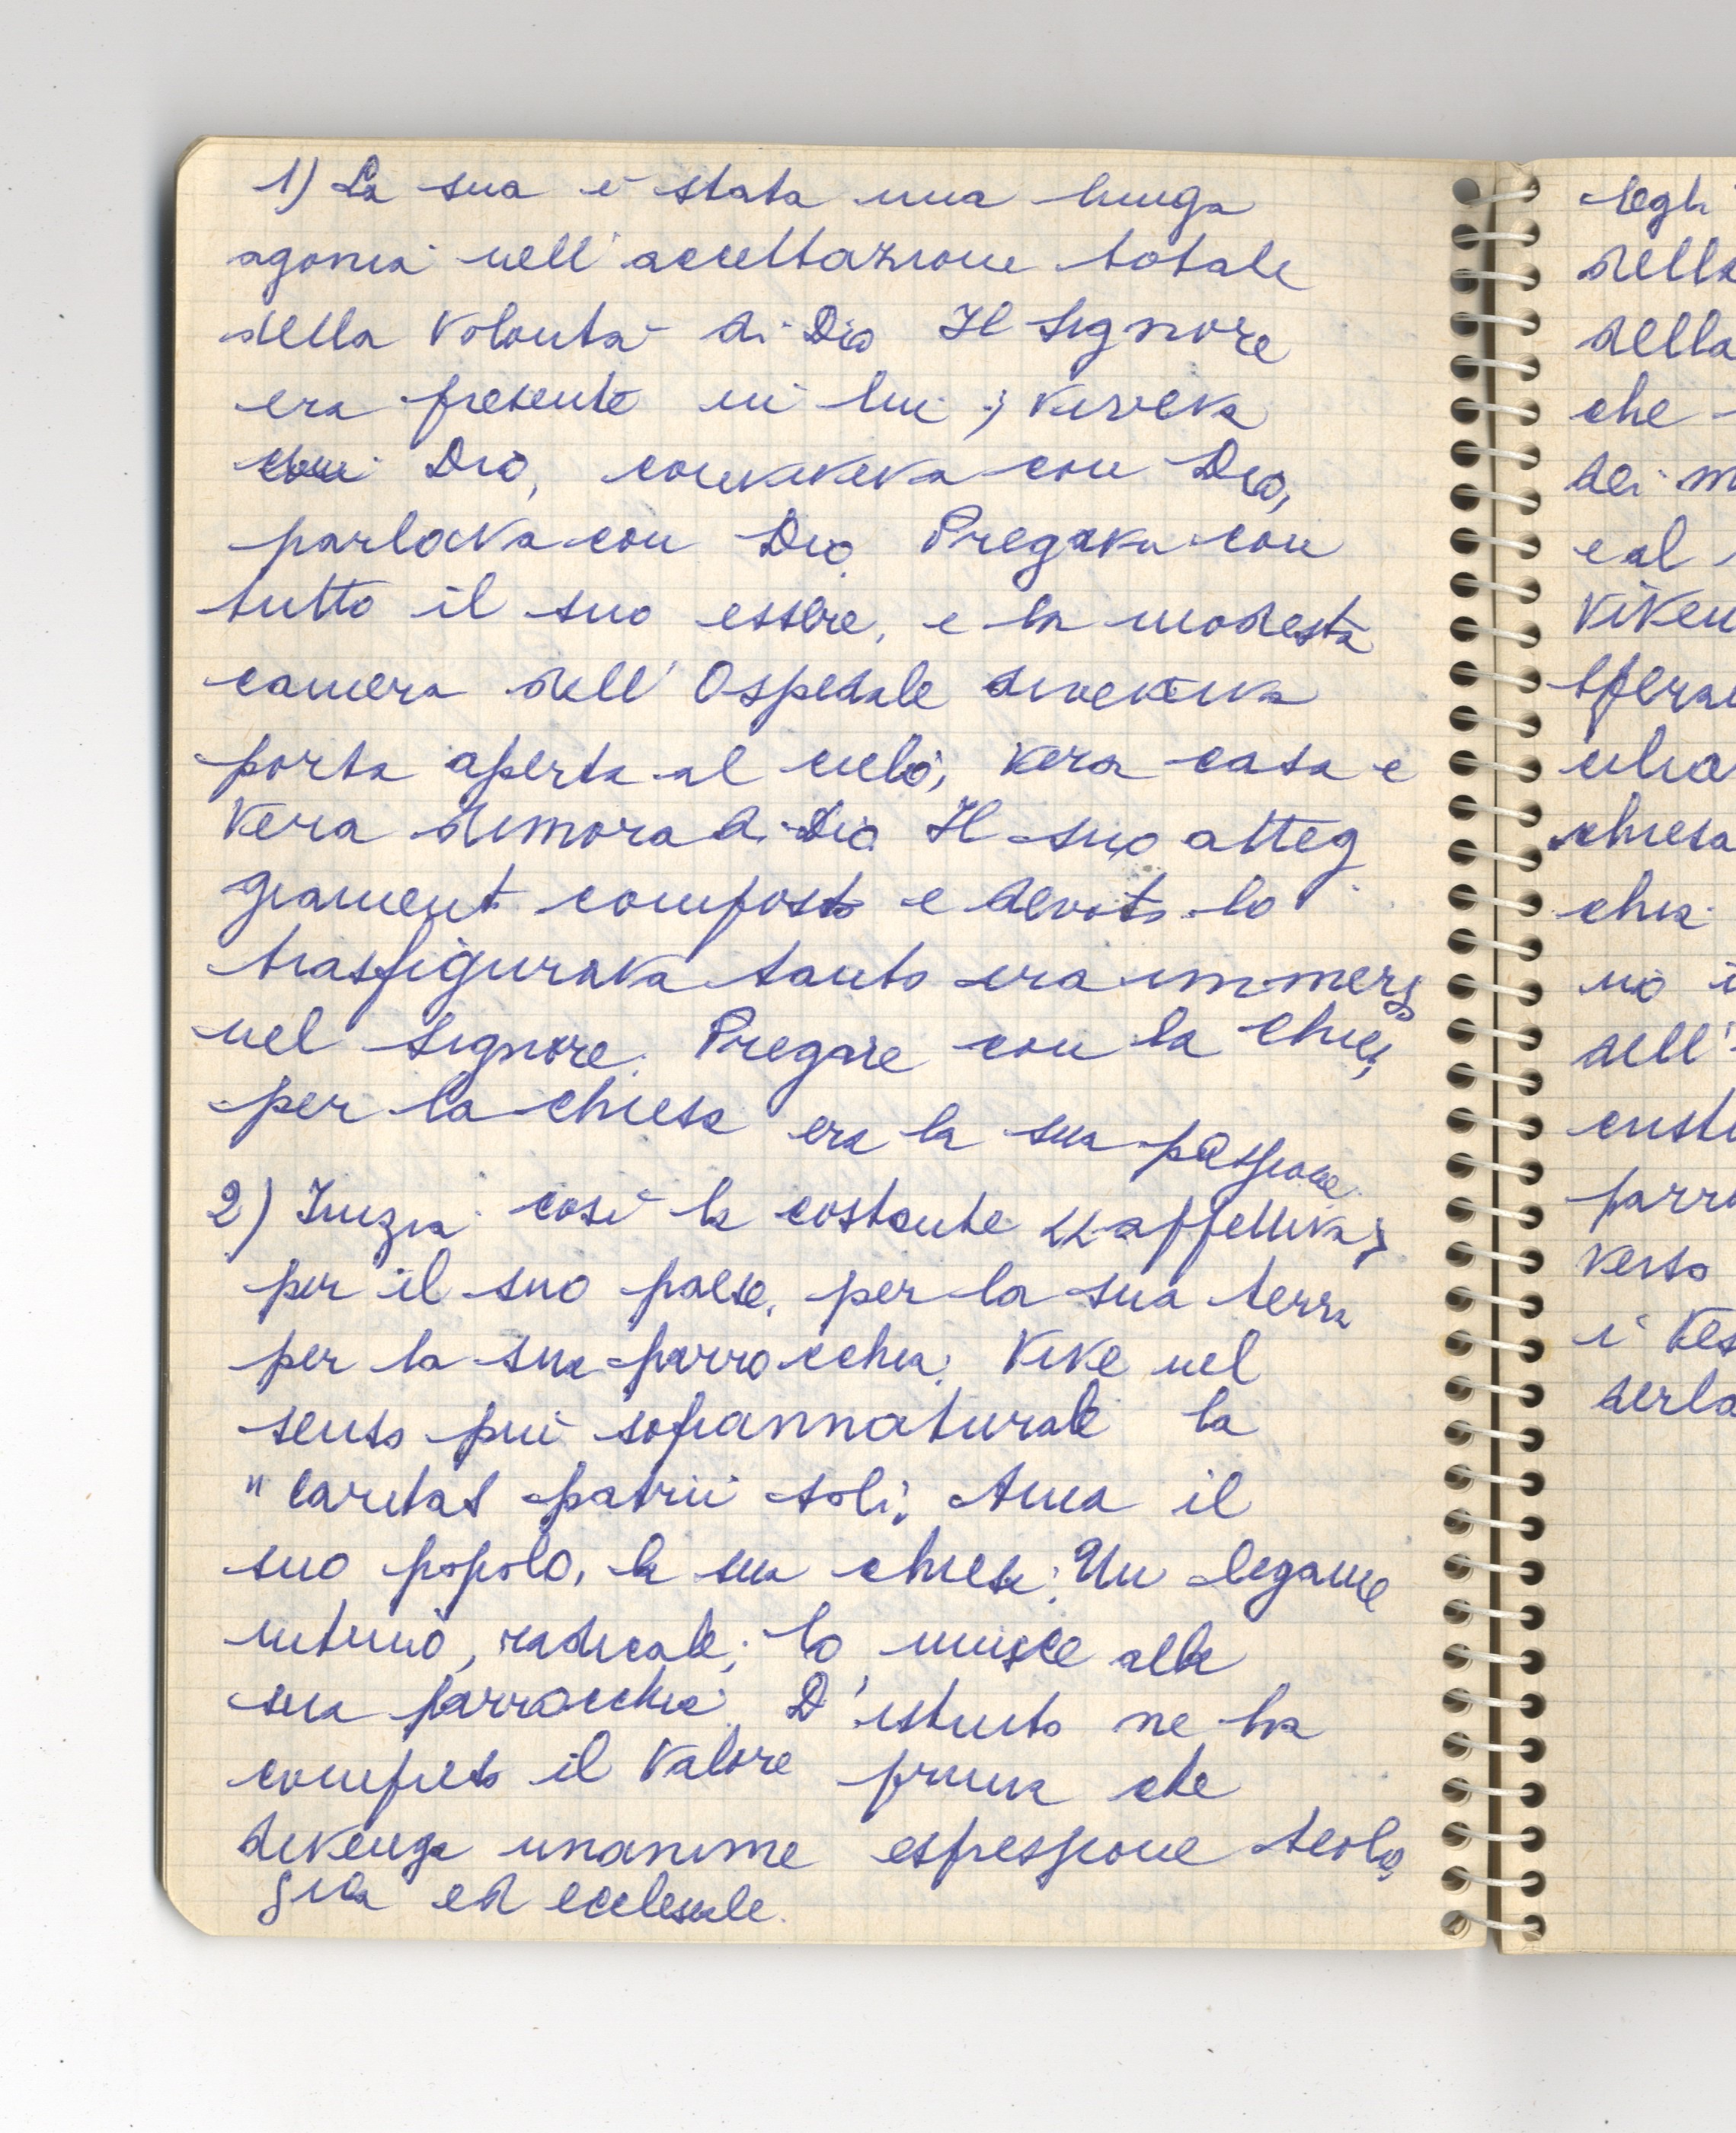 1) La sua è stata una lunga
agonia nell'accettazione totale
della Volontà di Dio Il Signore
era presente in lui; viveva
con Dio, conviveva con Dio,
parlava con Dio. Pregava con
tutto il suo essere, e la modesta
camera dell'Ospedale diventava
porta aperta al cielo, vera casa e
vera dimora di Dio Il suo atteg
giament composto e devoto lo
trasfigurava tanto era immerso
nel Signore. Pregare con la Chiesa
per la chiesa era la sua passione
2) Inizia così la costante << affettiva >>
per il suo paese, per la sua terra
per la sua parrocchia; Vive nel
senso più soprannaturale la
"Caritas patrii soli; Ama il
suo popolo, la sua chiesa; Un legame
intimo, radicale; lo unisce alla
sua parrocchia. D'istinto ne ha
compreso il valore prima che
divenga unanime espressione teolo
gica ed ecclesiale.
della
della
che
dei
e al
chiesa
dell'
verso